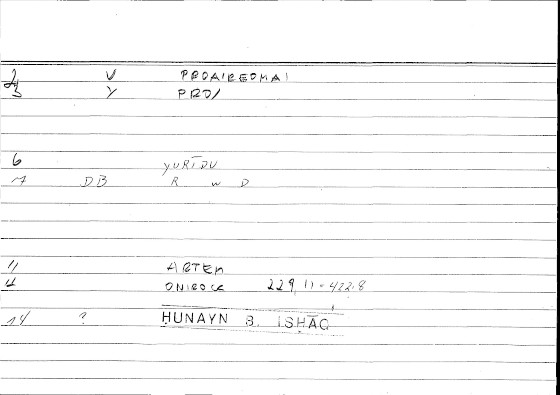 2 V PROAIREOMAI
3 Y PRO/
6 YURĪDU
7 DB R W D
11 ARTEM
4 ONIROCR 229,11-422.8
14 ? ḤUNAYN B. ISḤĀQ